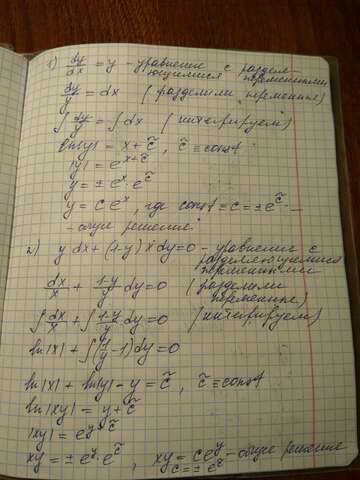 1) dy/dx = y - уравнение с раздел-
ющимися переменными
dy/y = dx (разделили переменные)
∫ dy/y = ∫ dx (интегрируем)
ln|y| = x + c̃, c̃ = const
|y| = e^(x+c̃)
y = ± e^x · e^c̃
y = c e^x, где const = c = ± e^c̃ -
- общее решение
2) y dx + (1-y) x dy = 0 - уравнение с
разделяющимися
переменными
dx/x + (1-y)/y dy = 0 (разделили
переменные)
∫ dx/x + ∫ (1-y)/y dy = 0 (интегрируем)
ln|x| + ∫ (1/y - 1) dy = 0
ln|x| + ln|y| - y = c̃, c̃ = const
ln|xy| = y + c̃
|xy| = e^(y+c̃)
xy = ± e^y · e^c̃, xy = c e^y - общее решение
c = ± e^c̃